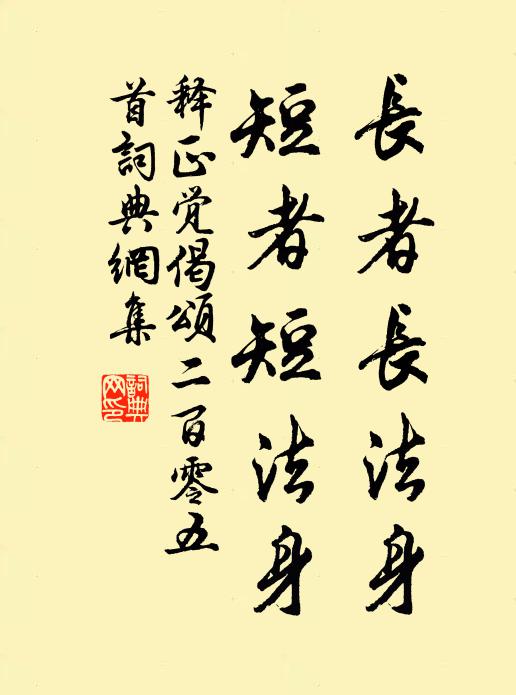 長者長法身
短者短法身
释正觉偈頌二百零五
首詞典網集
詞典网印